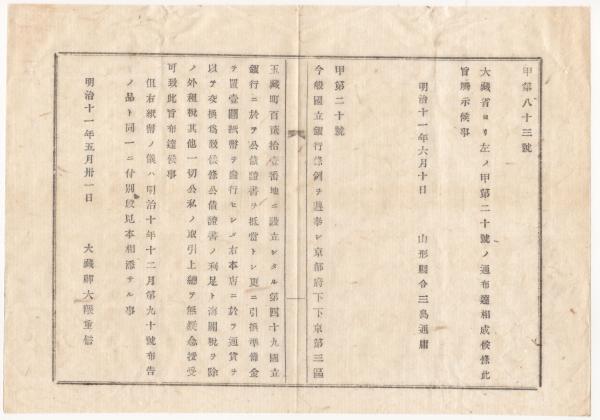 甲第八十三號
大藏省ヨリ左ノ甲第二十號ノ通布達相成候條此
旨揭示候事
明治十一年六月十日
山形縣令三島通庸
甲第二十號
今般國立銀行條例ヲ遵奉シ京都府下下京第三區
玉藏町百貳拾壹番地ニ設立シタル第四十九國立
銀行ニ於テ公債證書ヲ抵當トシ更ニ引換準備金
ヲ置壹圓紙幣ヲ發行セシメ右本店ニ於テ通貨ヲ
以テ交換爲致候條公債證書ノ利足ト海關稅ヲ除
ノ外租稅其他一切公私ノ取引上總テ無疑念授受
可致此旨布達候事
但右紙幣ノ儀ハ明治十年十二月第九十號布告
ノ品ト同一ニ付別段見本相添サル事
明治十一年五月卅一日
大藏卿大隈重信